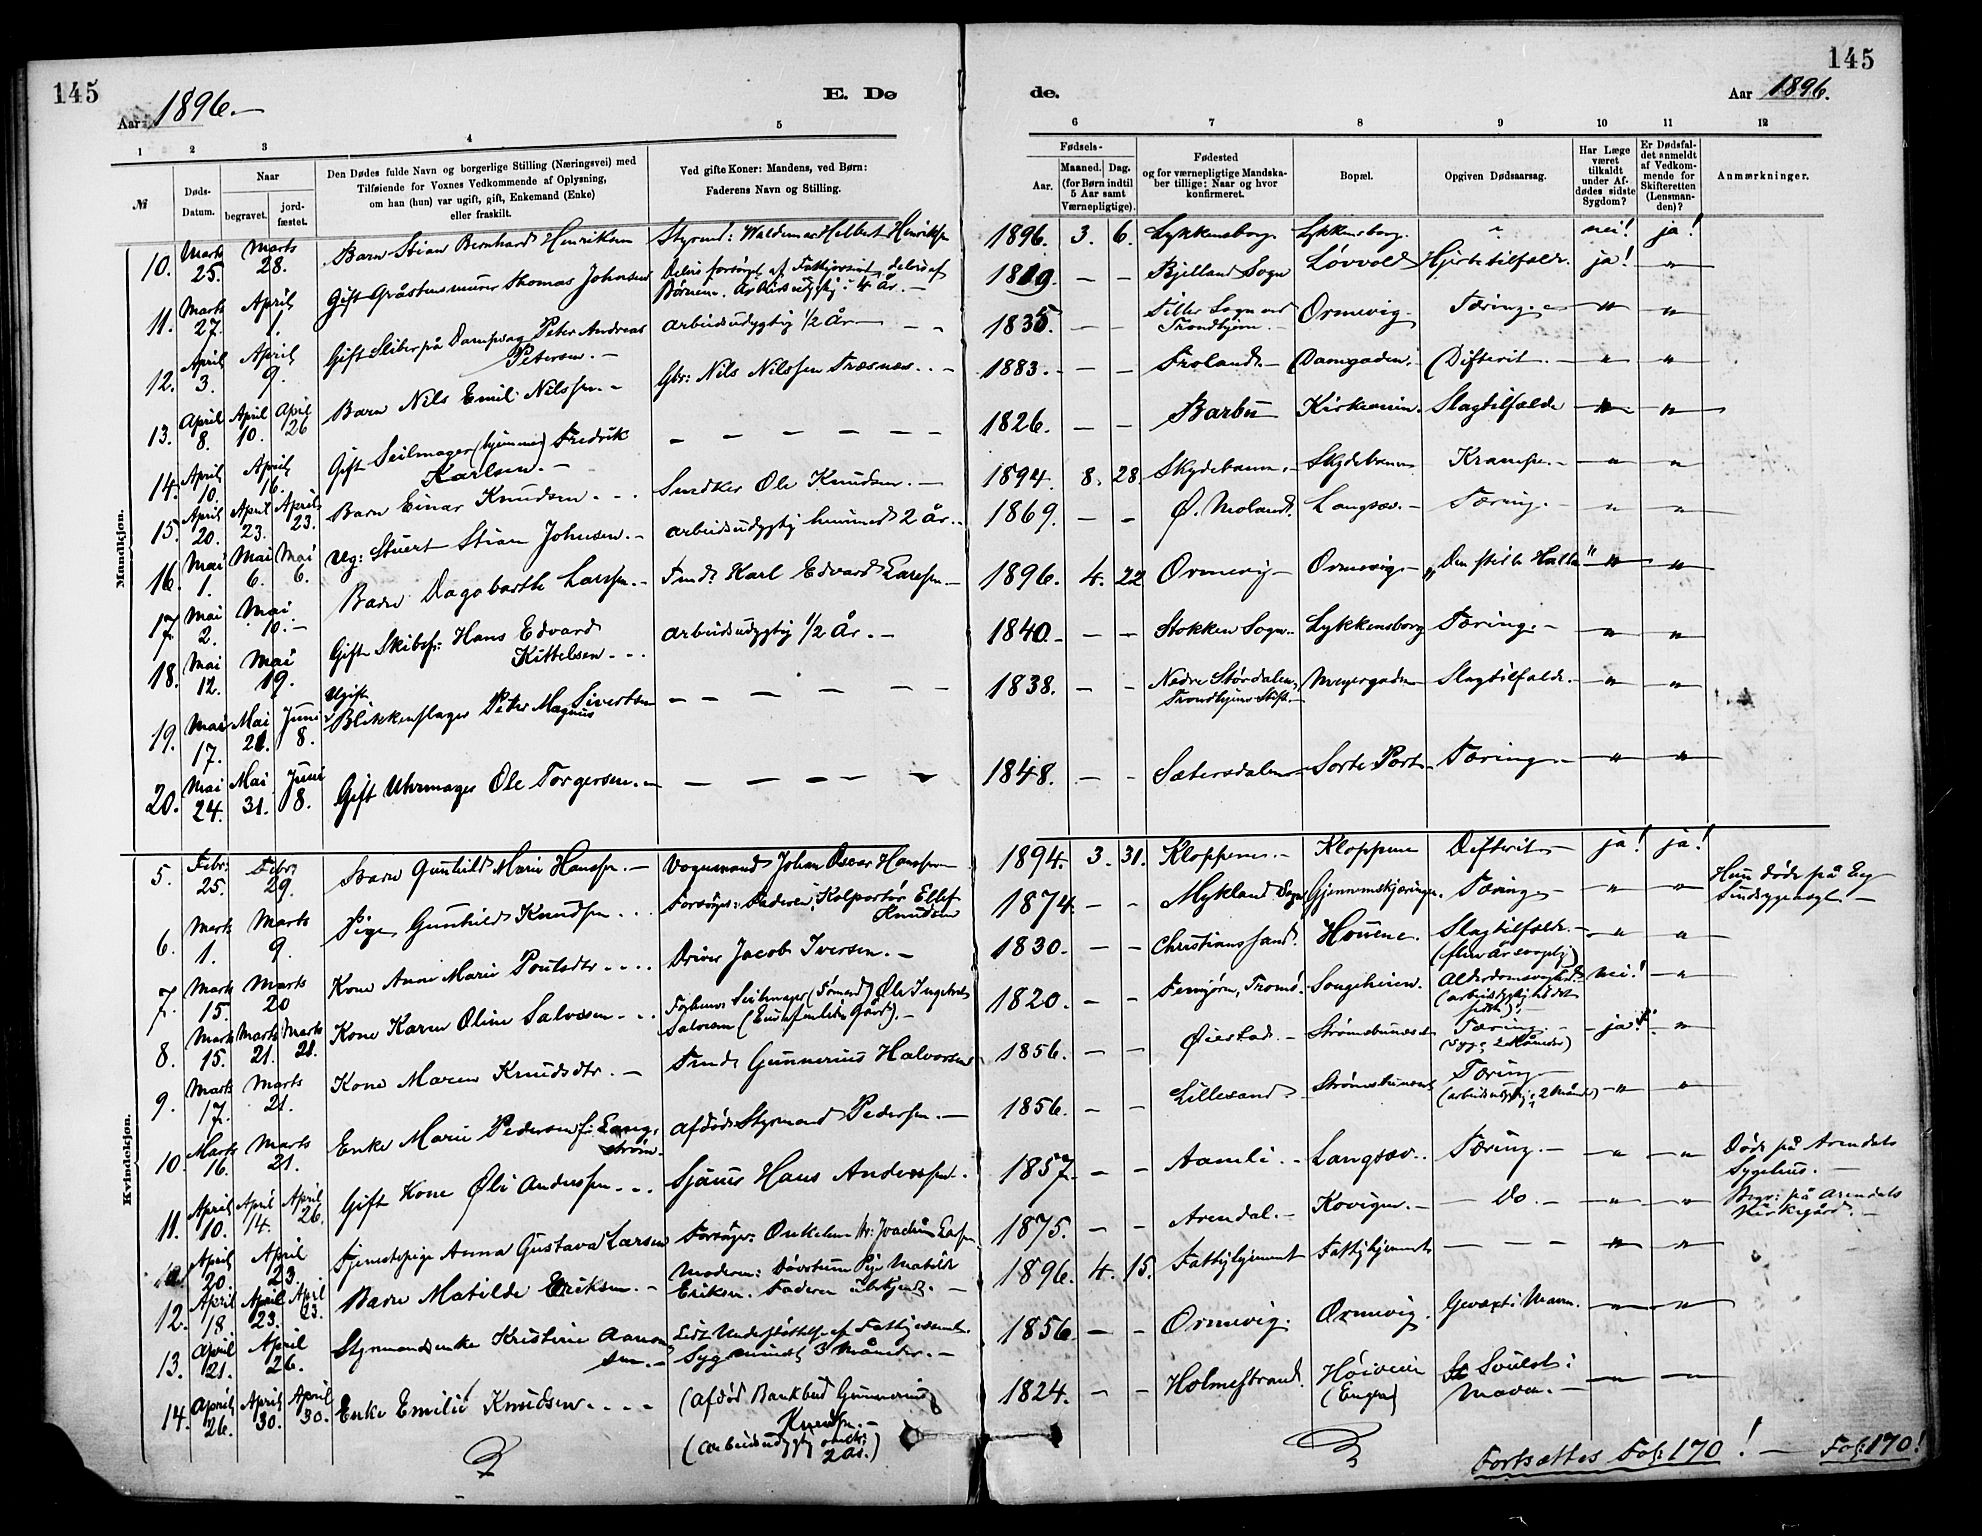 145
Aar 1896.—
E. Dø
de.
145
Aar 1896.
1 2 3 4 5
6 7 8 9 10 11 12
№
Døds-
Datum.
Naar
begravet.
jord-
fæstet.
Den Dødes fulde Navn og borgerlige Stilling (Næringsvei) med
Tilføiende for Voxnes Vedkommende af Oplysning,
om han (hun) var ugift, gift, Enkemand (Enke)
eller fraskilt.
Ved gifte Koner: Mandens, ved Børn:
Faderens Navn og Stilling.
Fødsels-
Aar.
Maaned. Dag.
(for Børn indtil
5 Aar samt
Værnepligtige).
Fødested
og for værnepligtige Mandska-
ber tillige: Naar og hvor
konfirmeret.
Bopæl.
Opgiven Dødsaarsag.
Har Læge
været
tilkaldt
under Af-
dødes sidste
Sygdom?
Er Dødsfal-
det anmeldt
af Vedkom-
mende for
Skifteretten
(Lensman-
den)?
Anmærkninger.
Mandkjøn.
10. Marts 25. Marts 28. Barn Stian Bernhard Henriksen Styrmd: Waldemar Helbert Henriksen 1896. 3. 6. Lykkensborg Lykkensborg " nei! ja!
11. Marts 27. April 1. Gift Gråstensmurer Thomas Johnsen Delvis forsørget af Fattigvæsenet, delvis af
Børnene. Arbeidsudygtig i 4 År. — 1819. — — Bjelland Sogn Løvvold Hjertetilfælde. ja! "
12. April 3. April 9. Gift Sliber på Dampsag Peter Andreas
Petersen. — arbeidsudygtig 1/2 År — 1835. — — Tiller Sogn ved
Trondhjem. — Ormevig. Tæring. — " "
13. April 8. April 10. April 26 Barn Nils Emil Nilssen. — Gbr: Nils Nilssen Træsnæs. — 1883. — — Froland. — Damgaden. Difterit. — " "
14. April 10. April 16. Gift Seilmager (hjemme) Fredrik
Karlsen. — — — — — — — 1826. — — Barbu Kirkeveien. Slagtilfælde " "
15. April 20. April 23. April 23. Barn Einar Knudsen. — Snedker Ole Knudsen. — 1894. 8. 28 Skydebanen. — Skydebanen Krampe. — " "
16. Mai 1. Mai 6. Mai 6. Ug: Stuert Stian Johnsen. — arbeidsudygtig henimod 2 år. 1869. — — Ø. Moland. Langsæv. — Tæring. — " "
17. Mai 2. Mai 10. — Barn Dagobarth Larssen. — Tmd: Karl Edvard Larssen — 1896. 4. 22 Ormevig — Ormevig. — " "
18. Mai 12. Mai 19. Gift Skibsf: Hans Edvard
Kittelsen. — arbeidsudygtig 1/2 År. — 1840. — — Stokken Sogn. Lykkensborg Tæring. — " "
19. Mai 17. Mai 21. Juni 8. Ugift
Blikkenslager Peter Magnus Sivertsen — — — — — 1838. — — Nedre Størdalen,
Trondhjems Stift. — Slagtilfælde. — " "
20. Mai 24. Mai 31. Juni 8. Gift Uhrmager Ole Torgersen. — — — — — — 1848. — — Sætersdalen Sorte Port. Tæring. — " "
Kvindekjøn.
5. Febr. 25. Febr. 29. Barn Gunhild Marie Hanssen. — Vognmand Johan Oscar Hanssen 1894. 3. 31. Kloppene. — Kloppene Difterit — ja! ja!
6. Marts 1. Marts 9. Pige Gunhild Knudsen . . . Forsørger: Faderen, Kolportør Ellef
Knudsen 1874. — — Mykland Sogn Gjennemskjæringen. Tæring. — " " Hun døde på Eg
Sindssygeasyl. —
7. Marts 15. Marts 20 Kone Anne Marie Poulsdtr . . . . Driver Jacob Iversen. — 1830. — — Christianssand. Houene. Slagtilfælde. —
" "
8. Marts 15. Marts 21. Marts 21. Kone Karen Oline Salvesen . . . Forhenv. Seilmager (Tømmd) Ole Ingebret
Salvesen 1820. — — Songeheien. Alderdomssvaghed
nei! "
9. Marts 17. Marts 21. Kone Maren Knudsdtr. — Tmd: Gunnerius Halvorsen 1856. — — Øiestad. — Strømsbunæset Tæring —
(syg i 2 Måneder) ja! "
10. Marts 16. Marts 21. Enke Marie Pedersen f: Lang-
strøm. — afdød Styrmand Pedersen. — 1856. — — Lillesand Strømsbunæset Tæring —
(arbeidsudygtig i 2 Månder) " "
11. April 10. April 14. April 26. Gift Kone Øli Anderssen. . . . Sjømd Hans Anderssen. 1857. — — Aamli. — Langsæv. Tæring. — " " Døde på Arendals
Sygehus. —
April 20. April 23. Tjenestepige Anna Gustava Larsen Forsørger: Onkelen 1875. — — Arendal. — Kovigen. — — Do. — " " Begr: på Arendals
Kirkegård. —
12. April 18 April 23. April 23. Barn Matilde Eriksen. — Moderen: Døvstum Pige Matilde
Eriksen. Faderen ubekjendt. — 1896. 4. 15. Fattighjemmet Fattighjemmet — — — " "
13. April 21. April 26. Styrmandsenke Kristine Aanon-
sen. — Lidt Understøttelse af Fattigvæsenet.
Syg mindst 3 Måneder. — 1856 — — Ormevig. Ormevig. Gevæxt i Maven. " "
14. April 26. April 30. April 30. Enke Emilie Knudsen. . . . (Afdød Bankbud Gunnerius
Knudsen. —
(arbeidsudygtig omtr:
2 År.) 1824. — — Holmestrand. Høiveien
(Engen) Svulst i
Maven. — " "
Fortsættes Fol: 170! — Fol: 170!